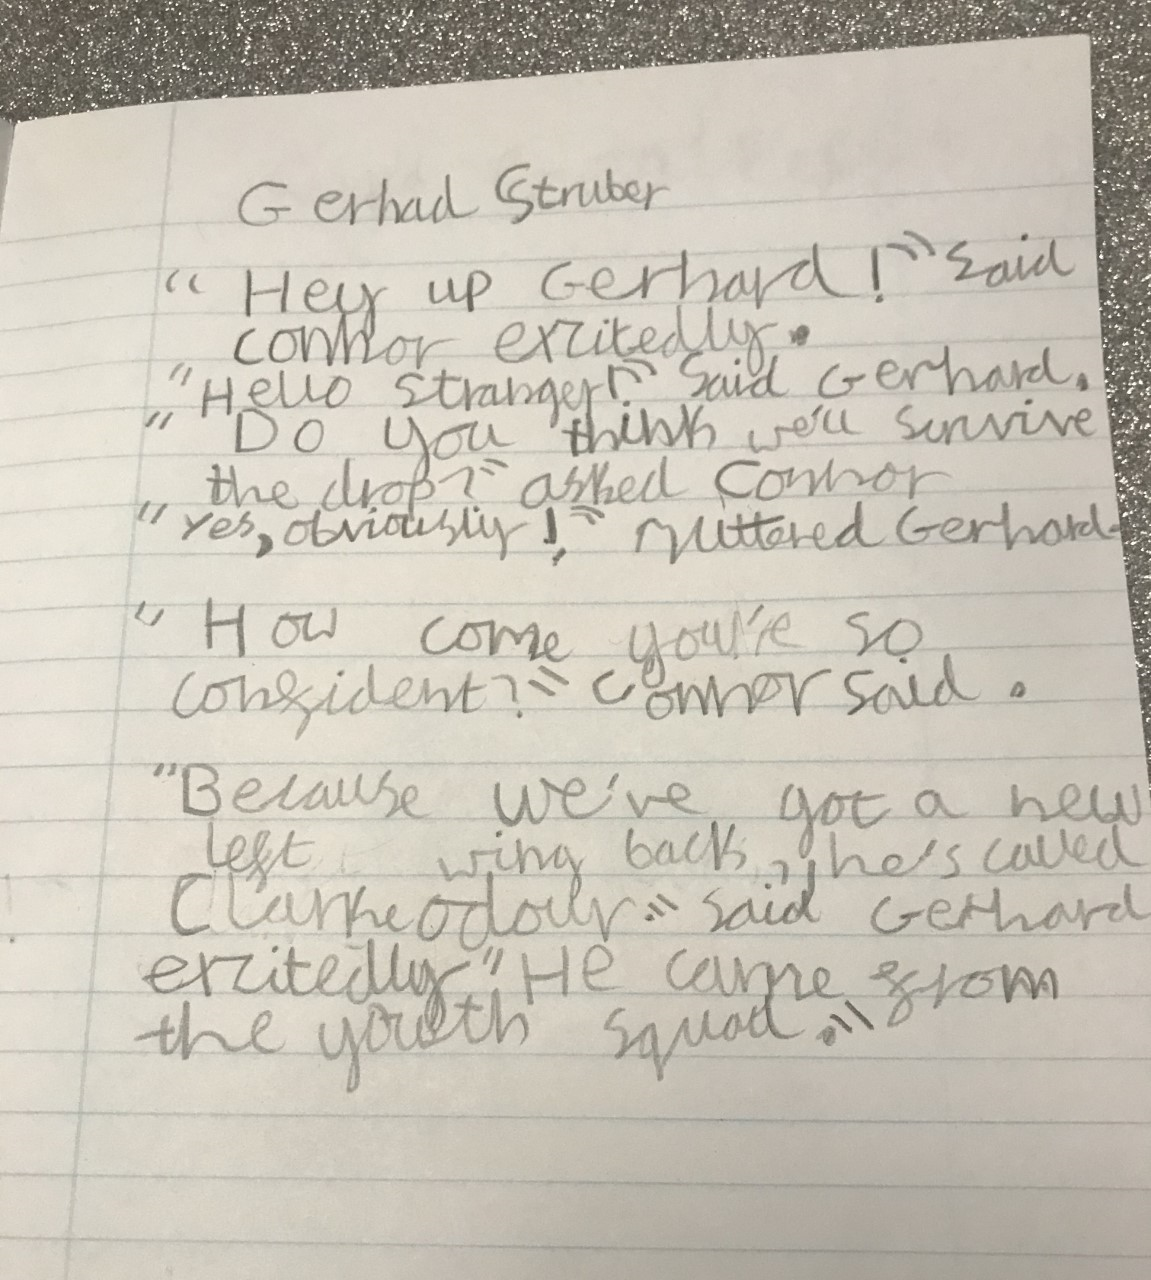 Gerhad Struber
"Hey up Gerhard!" Said
connor excitedly.
"Hello Stranger!" Said Gerhard.
"Do you think we'll survive
the drop?" asked Connor
"Yes, obviously!" muttered Gerhard.
"How come you're so
confident?" Connor said.
"Because we've got a new
left wing back, he's called
Clarke Odour." said Gerhard
excitedly "He came from
the youth squad."